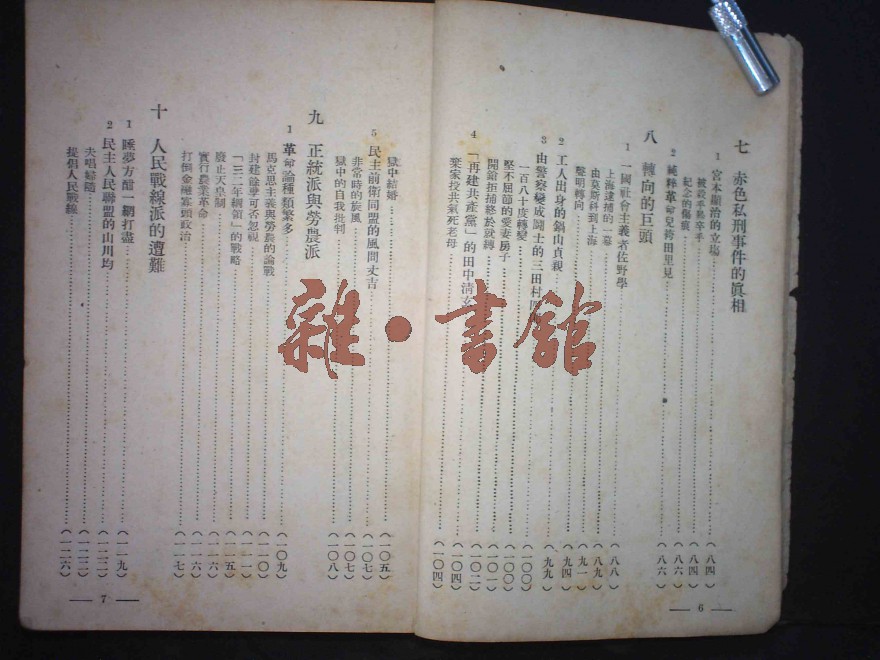 七 赤色私刑事件的眞相
1 宮本顯治的立場……(八四)
被害乎熱卒乎……(八四)
紀念的傷痕……(八六)
2 純粹革命兒袴田里見……(八六)
八 轉向的巨頭
1 一國社會主義者佐野學……(八八)
上海逮捕的一幕……(八九)
由莫斯科到上海……(九一)
聲明轉向……(九四)
2 工人出身的鍋山貞親……(九九)
3 由警察變成鬪士的三田村
一百八十度轉變……(一〇〇)
堅不屈節的愛妻房子……(一〇一)
開鎗拒捕終於就縛……(一〇二)
4 「再建共產黨」的田中淸玄……(一〇四)
棄家投共氣死老母……(一〇四)
6
獄中結婚……(一〇五)
5 民主前衞同盟的風間丈吉……(一〇七)
非常時的旋風……(一〇七)
獄中的自我批判……(一〇八)
九 正統派與勞農派
1 革命論種類繁多……(一〇九)
馬克思主義與勞農的論戰……(一一〇)
封建論爭可否忽視……(一一一)
「三二年綱領」的戰略……(一一五)
廢止天皇制……(一一六)
實行農業革命……(一一六)
打倒金融寡頭政治……(一一七)
十 人民戰線派的遭難
1 睡夢方酣一網打盡……(一一九)
2 民主人民聯盟的山川均……(一二二)
夫唱婦隨……(一二二)
提倡人民戰線……(一二六)
7
雜·書館